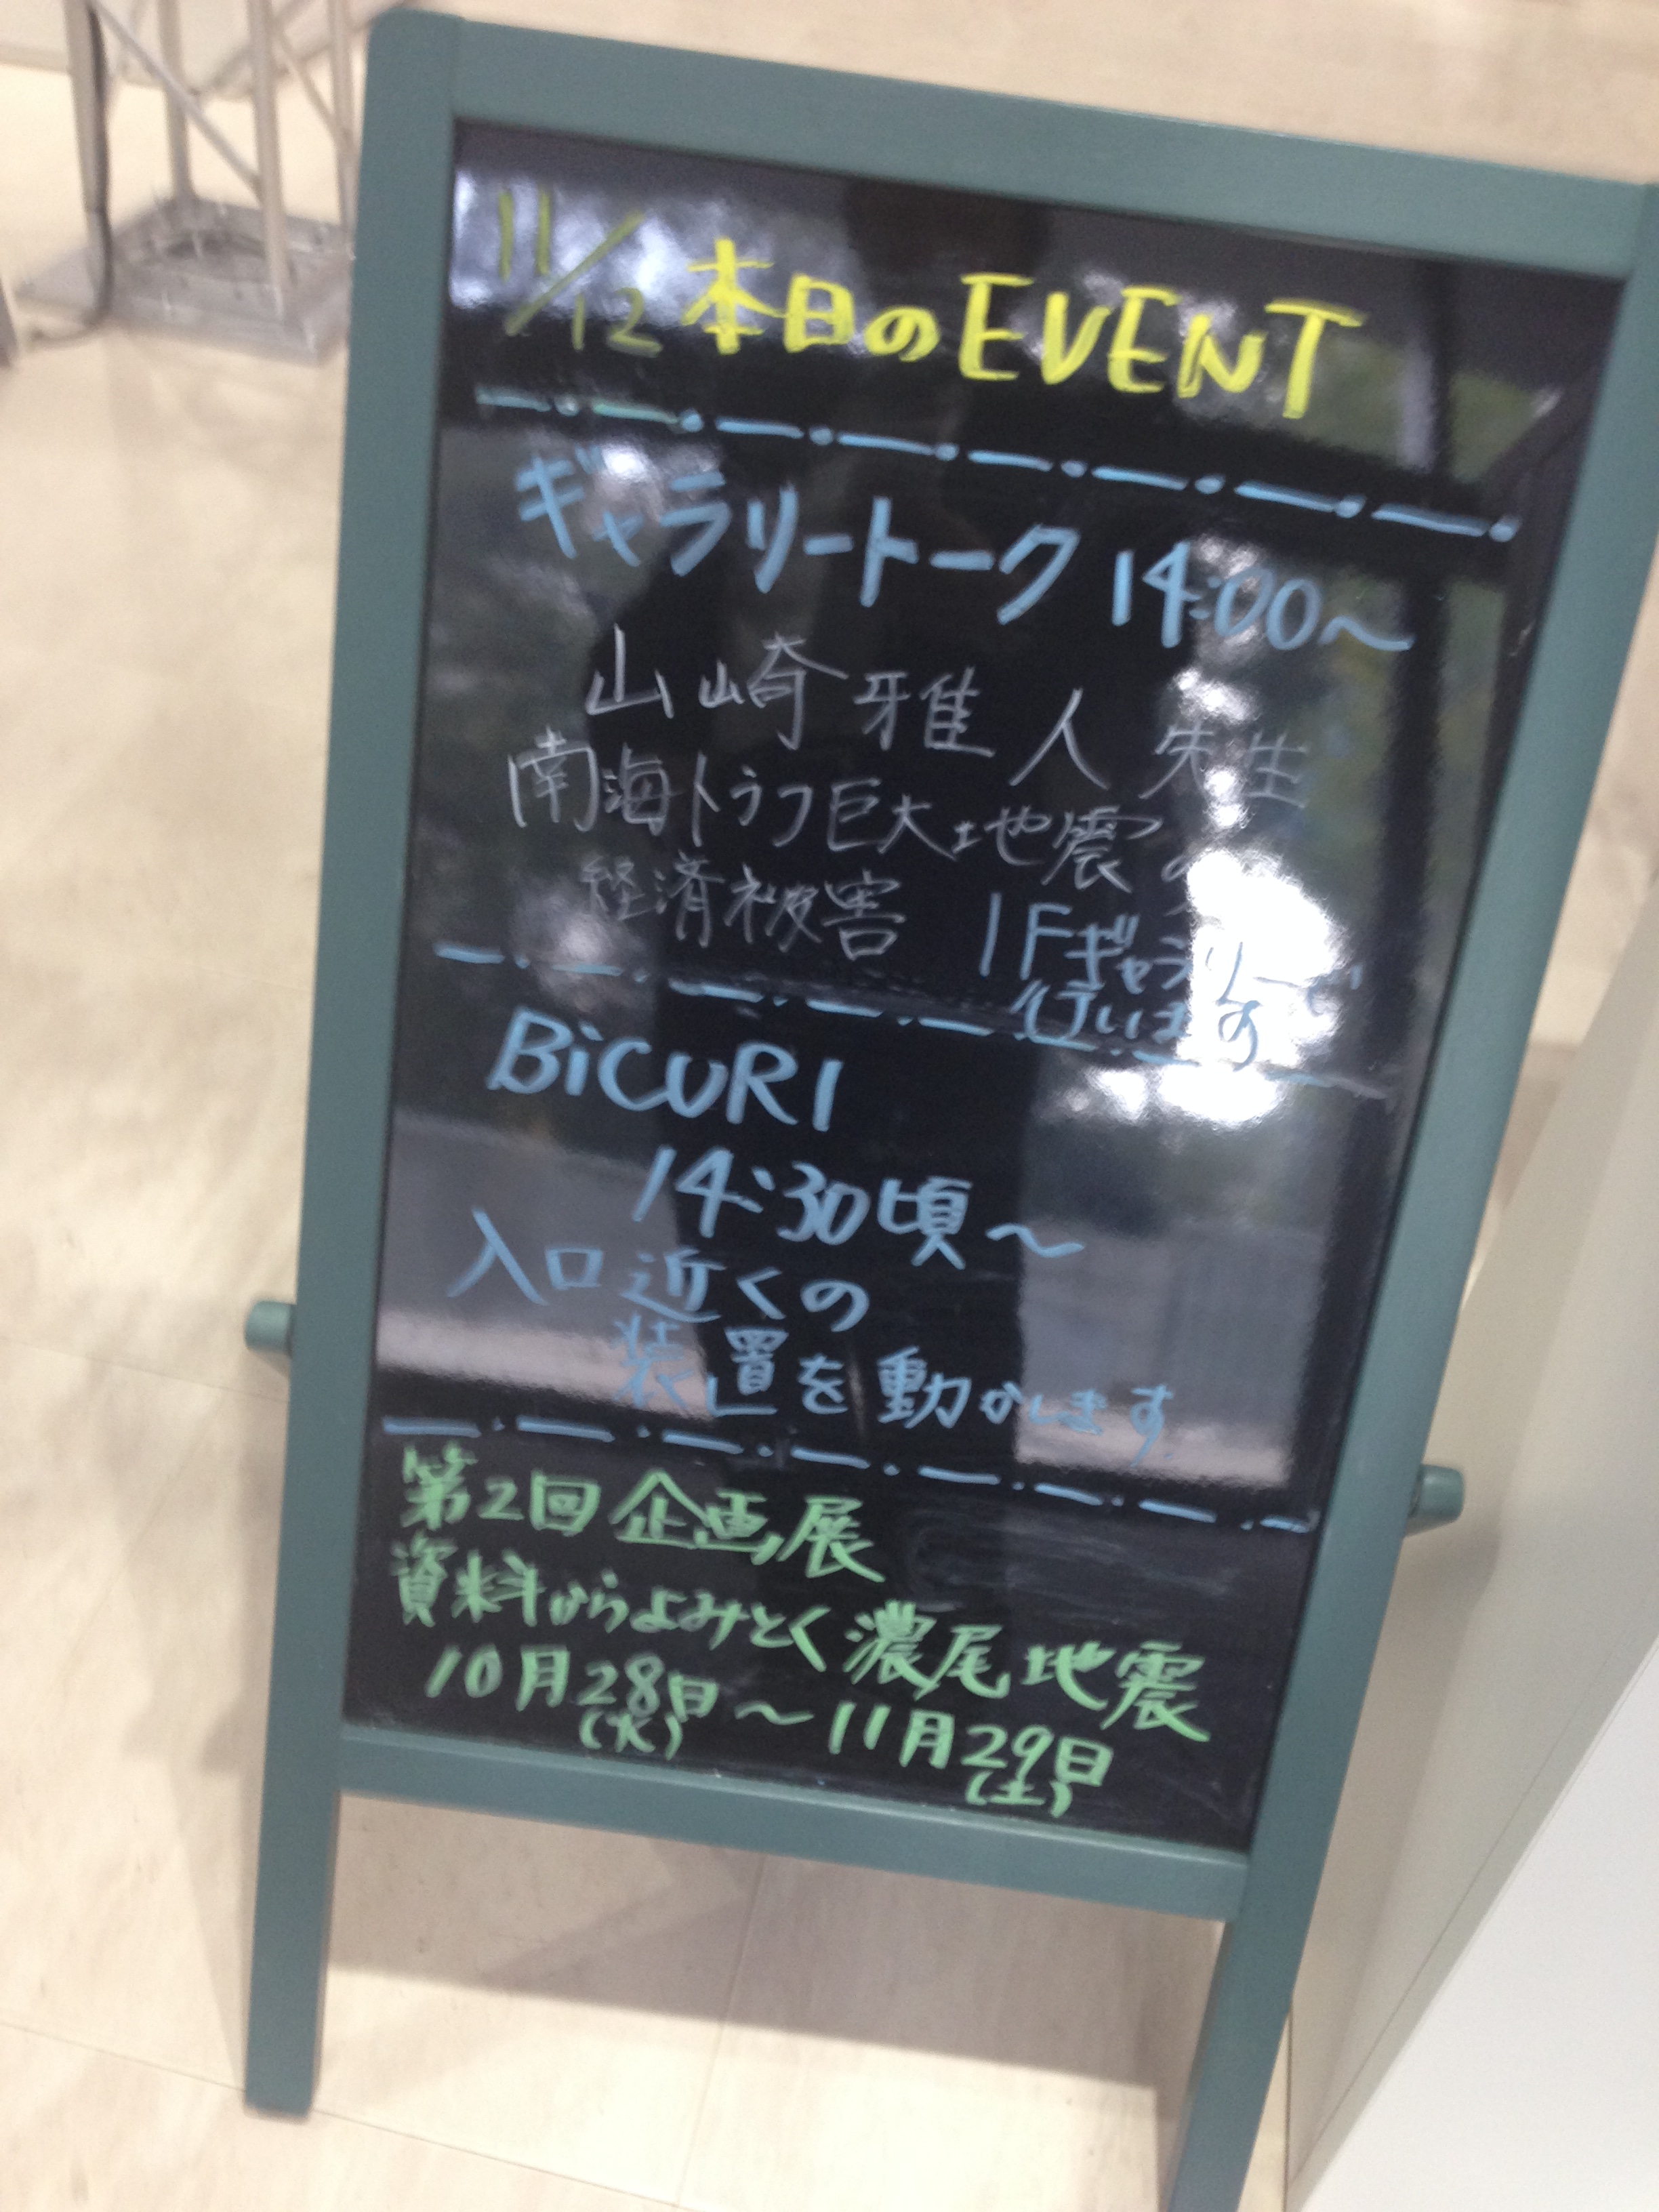 11/12 本日のEVENT
ギャラリートーク 14:00〜
山崎 雅人 先生
南海トラフ巨大地震の
経済被害
1Fギャラリーで
行います
BiCURI
14:30頃〜
入口近くの
装置を動かします
第2回 企画展
資料からよみとく濃尾地震
10月28日〜11月29日
(火) (土)